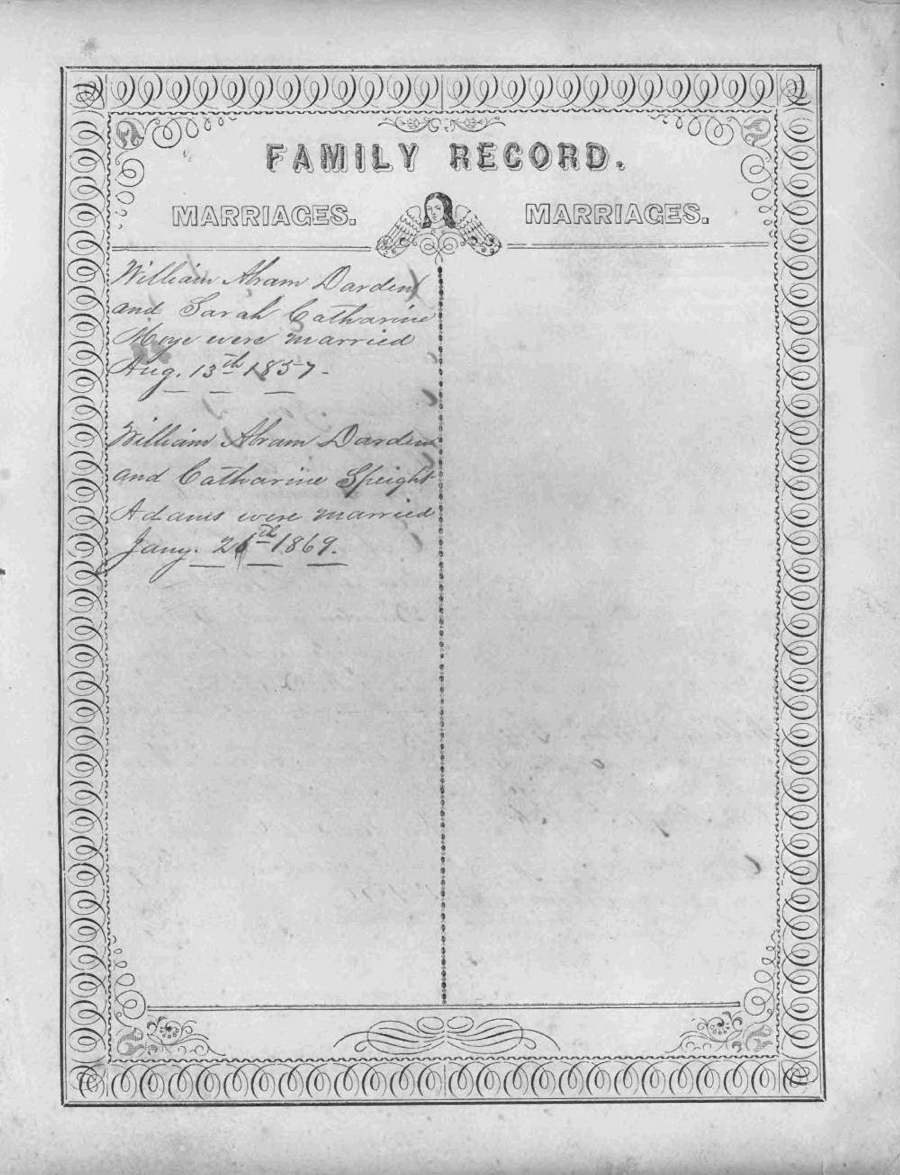 FAMILY RECORD.
MARRIAGES. MARRIAGES.
William Abram Darden
and Sarah Catharine
Moye were married
Aug. 13th 1857.
William Abram Darden
and Catharine Speight
Adams were married
Jany. 1869.